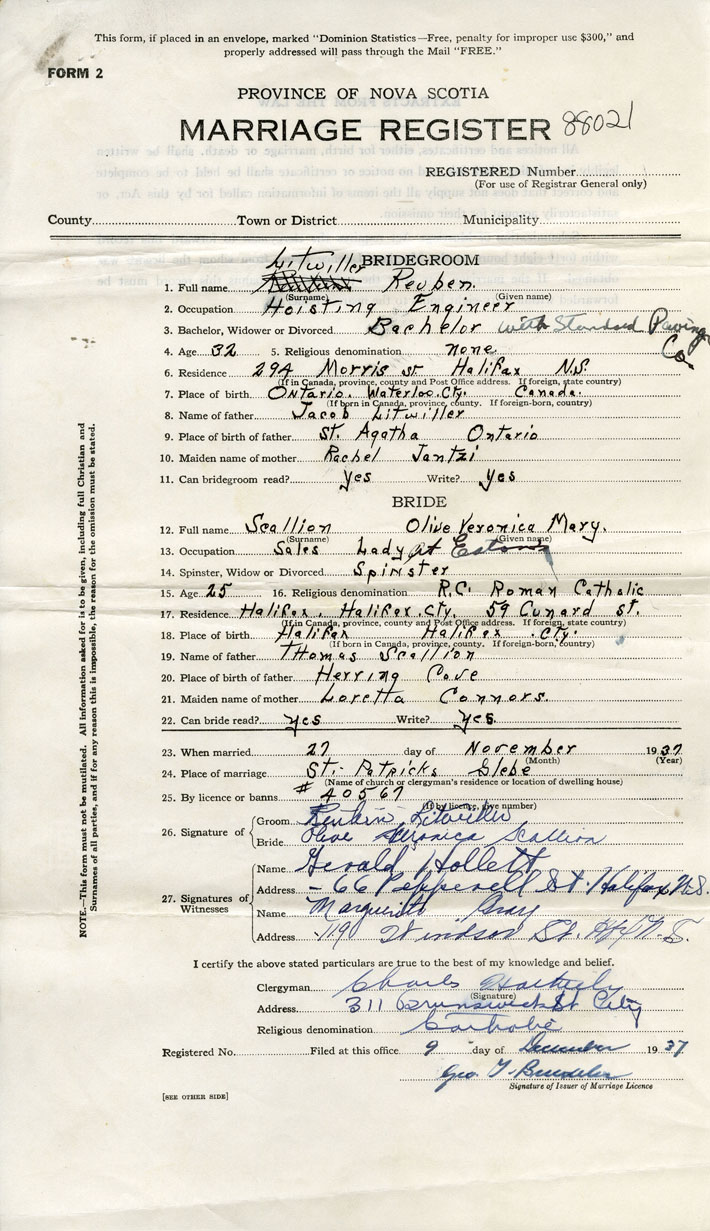 This form, if placed in an envelope, marked "Dominion Statistics—Free, penalty for improper use $300," and
properly addressed will pass through the Mail "FREE."
FORM 2
PROVINCE OF NOVA SCOTIA
MARRIAGE REGISTER 88021
REGISTERED Number
(For use of Registrar General only)
County Town or District Municipality
BRIDEGROOM
Litwiller
1. Full name Reuben.
(Surname) (Given name)
2. Occupation Hoisting Engineer
3. Bachelor, Widower or Divorced Bachelor with Standard Paving
Co
4. Age 32 5. Religious denomination none
6. Residence 294 Morris st Halifax N.S.
(If in Canada, province, county and Post Office address. If foreign, state country)
7. Place of birth Ontario. Waterloo. Cty. Canada.
(If born in Canada, province, county. If foreign-born, country)
8. Name of father Jacob Litwiller
9. Place of birth of father St. Agatha Ontario
10. Maiden name of mother Rachel Jantzi
11. Can bridegroom read? yes Write? yes
BRIDE
12. Full name Scallion Olive Veronica Mary.
(Surname) (Given name)
13. Occupation Sales Lady at Eatons
14. Spinster, Widow or Divorced Spinster
15. Age 25 16. Religious denomination R.C. Roman Catholic
17. Residence Halifax. Halifax. Cty. 59 Cunard st.
(If in Canada, province, county and Post Office address. If foreign, state country)
18. Place of birth Halifax Halifax. cty.
(If born in Canada, province, county. If foreign-born, country)
19. Name of father Thomas Scallion
20. Place of birth of father Herring Cove
21. Maiden name of mother Loretta Connors.
22. Can bride read? yes Write? yes.
23. When married 27 day of November 1937
(Month) (Year)
24. Place of marriage St. Patricks Glebe
(Name of church or clergyman's residence or location of dwelling house)
25. By licence or banns # 40567
(If by licence, give number)
26. Signature of Groom Litwiller
Bride Olive Veronica Scallion
27. Signatures of Witnesses
Name Gerald Hollett
Address - 66 Pepperell St. Halifax N.S.
Name Gray
Address Windsor St. Hfx N.S.
I certify the above stated particulars are true to the best of my knowledge and belief.
Clergyman Charles
(Signature)
Address 311 Brunswick St City
Religious denomination Catholic
Registered No. Filed at this office 9 day of December 1937
Geo. 
Signature of Issuer of Marriage Licence
[SEE OTHER SIDE]
NOTE.—This form must not be mutilated. All information asked for is to be given, including full Christian and
Surnames of all parties, and if for any reason this is impossible, the reason for the omission must be stated.